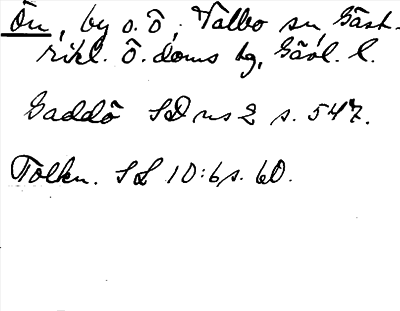 Ön, by o. ö, Valbo sn, Gäst-
rikl. Ö. doms hg, Gävl. l.
Gaddö SD ns 2 s. 547.
Tolkn. SL 10:6 s. 60.